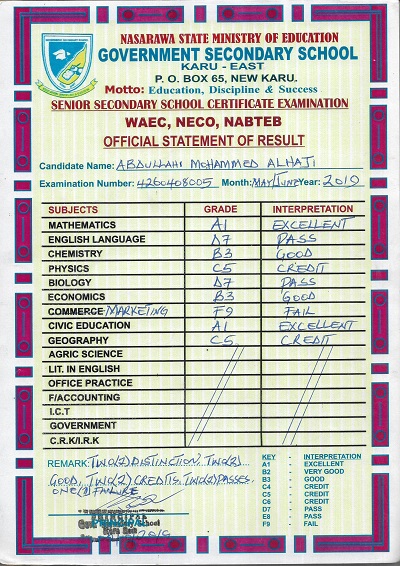 NASARAWA STATE MINISTRY OF EDUCATION
GOVERNMENT SECONDARY SCHOOL
KARU - EAST
P. O. BOX 65, NEW KARU.
Motto: Education, Discipline & Success
SENIOR SECONDARY SCHOOL CERTIFICATE EXAMINATION
WAEC, NECO, NABTEB
OFFICIAL STATEMENT OF RESULT
Candidate Name: ABDULLAHI MOHAMMED ALHAJI
Examination Number: 4260408005 Month: MAY/JUNE Year: 2019
SUBJECTS GRADE INTERPRETATION
MATHEMATICS A1 EXCELLENT
ENGLISH LANGUAGE D7 PASS
CHEMISTRY B3 GOOD
PHYSICS C5 CREDIT
BIOLOGY D7 PASS
ECONOMICS B3 GOOD
COMMERCE MARKETING F9 FAIL
CIVIC EDUCATION A1 EXCELLENT
GEOGRAPHY C5 CREDIT
AGRIC SCIENCE
LIT. IN ENGLISH
OFFICE PRACTICE
F/ACCOUNTING
I.C.T
GOVERNMENT
C.R.K/I.R.K
REMARK: TWO(2) DISTINCTION, TWO(2)
GOOD, TWO(2) CREDITS, TWO(2) PASSES.
ONE(1) FAILURE
KEY - INTERPRETATION
A1 - EXCELLENT
B2 - VERY GOOD
B3 - GOOD
C4 - CREDIT
C5 - CREDIT
C6 - CREDIT
D7 - PASS
E8 - PASS
F9 - FAIL